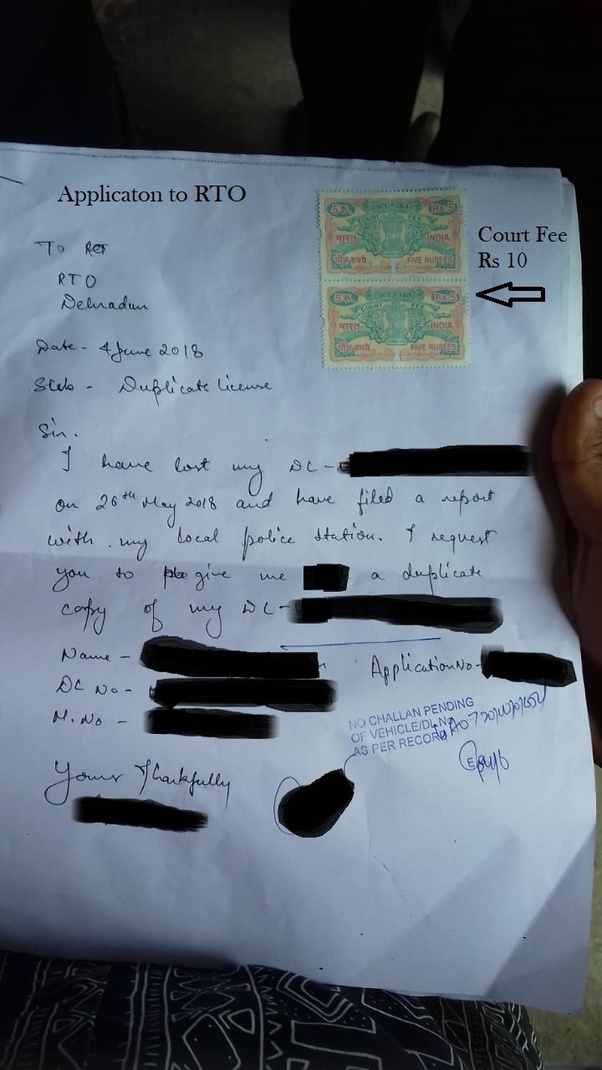 Applicaton to RTO
5.रु. Rs.5
COURT FEE
भारत INDIA
पाँच रुपये FIVE RUPEES
5.रु. Rs.5
COURT FEE
भारत INDIA
पाँच रुपये FIVE RUPEES
Court Fee
Rs 10
To
RTO
Dehradun
Date - 4 June 2018
Sub - Duplicate license
Sir.
I have lost my DL -
on 26th May 2018 and have filed a report
with my local police station. I request
you to give me a duplicate
copy of my DL -
Name -
Application No -
DL No -
M. No -
NO CHALLAN PENDING
OF VEHICLE/DL NO
AS PER RECORD
Yours Thankfully